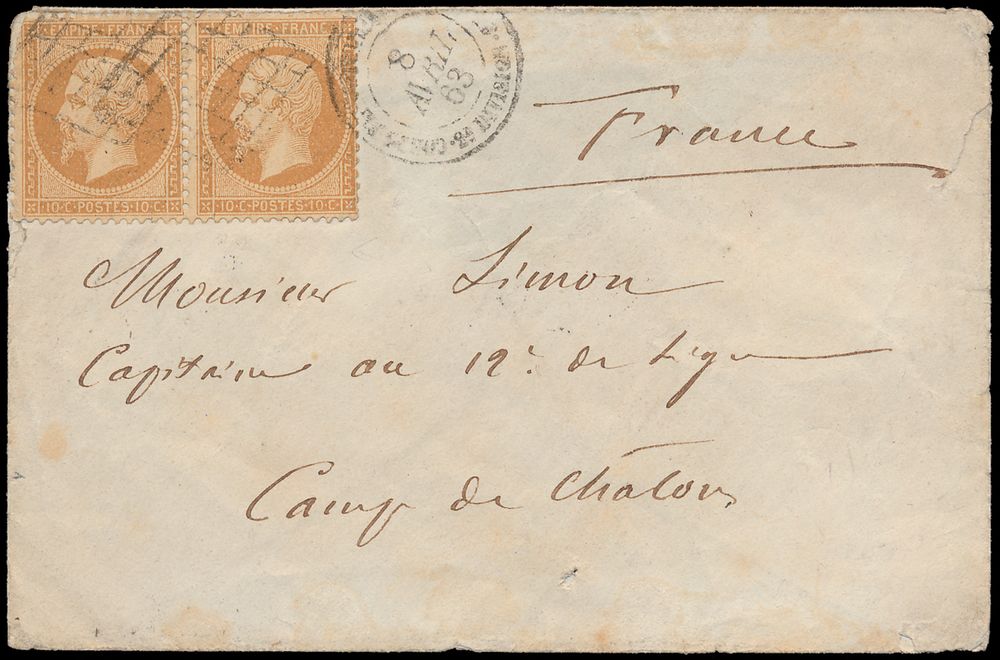 EMPIRE FRANC
EMPIRE FRANC
10·C·POSTES·10·C·
10·C·POSTES·10·C·
8
AVRIL
63
2e DIVISION
France
Monsieur Simon
Capitaine au 12e de ligne
Camp de Châlons